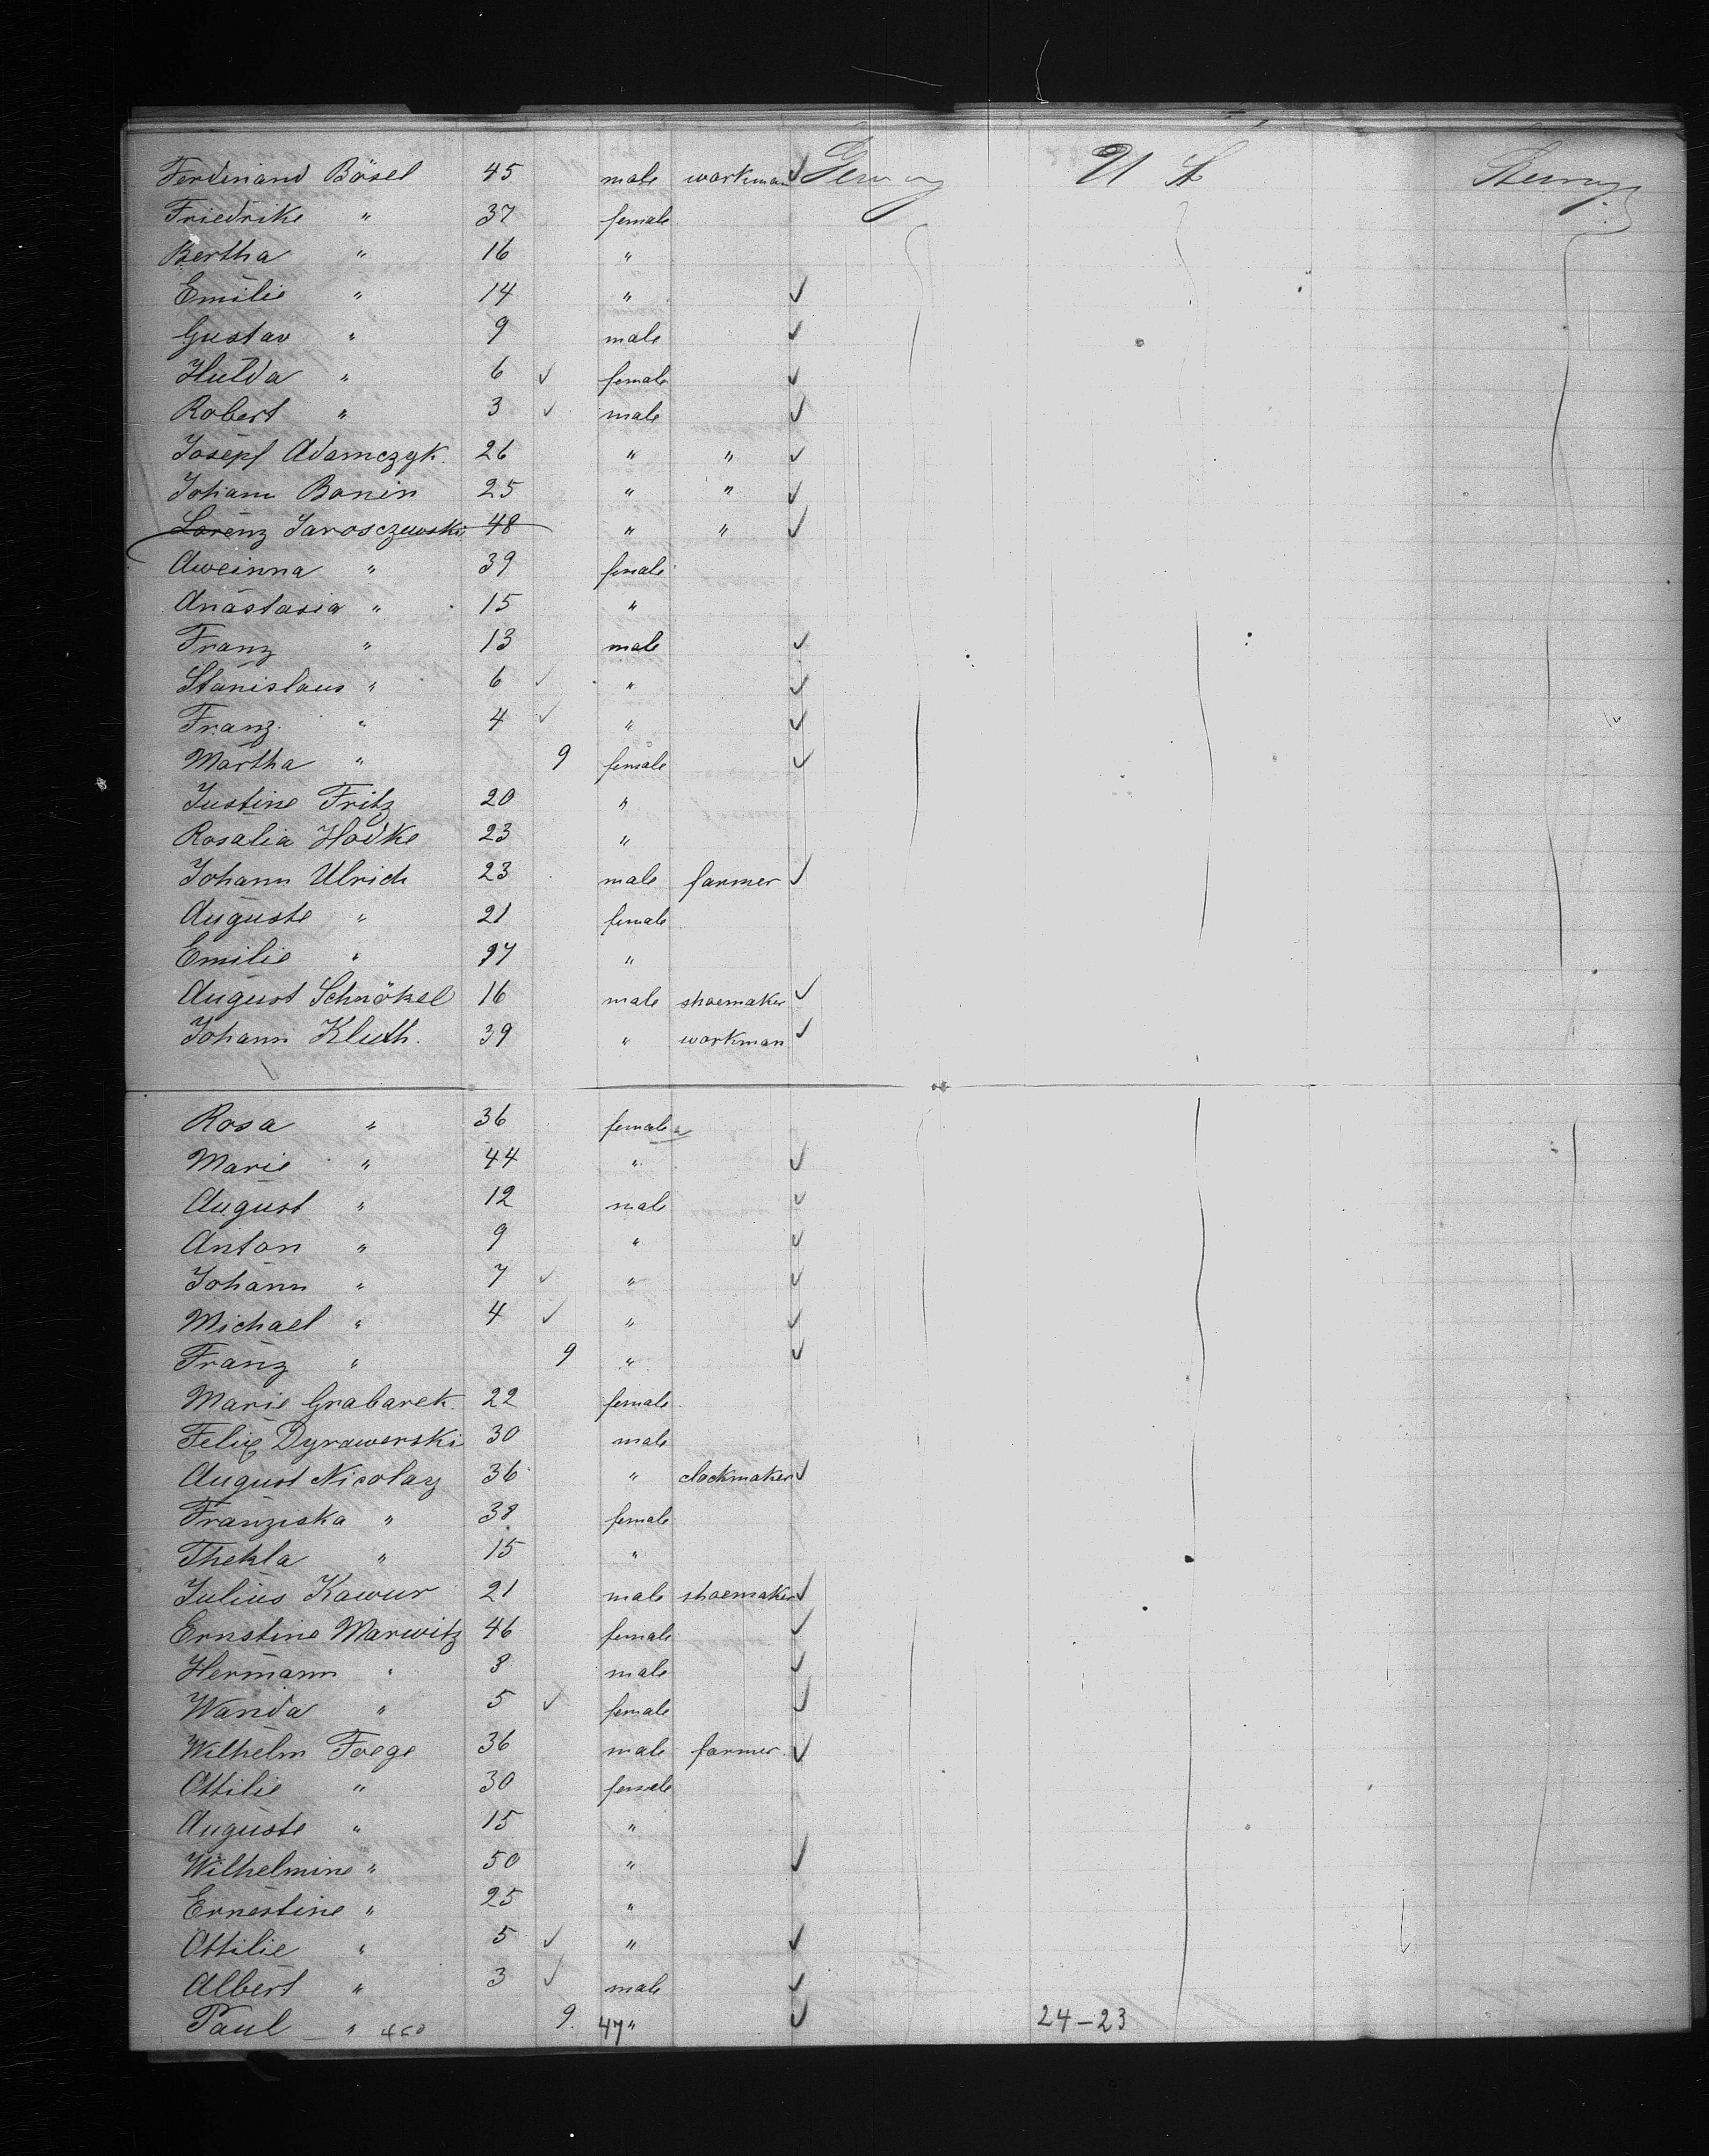 Ferdinand Bösel 45 male workman ✓ Germany U S Steerage
Friedrike " 37 female
Bertha " 16 "
Emilie " 14 " ✓
Gustav " 9 male ✓
Hulda " 6 ✓ female ✓
Robert " 3 ✓ male ✓
Josepf Adamczyk 26 " " ✓
Johann Bonin 25 " " ✓
Lorenz Jarosczewski 48 " " ✓
Aweinna " 39 female
Anastasia " 15 "
Franz " 13 male ✓
Stanislaus " 6 ✓ " ✓
Franz " 4 ✓ " ✓
Martha " 9 female ✓
Justine Fritz 20 "
Rosalia Hodke 23 "
Johann Ulrich 23 male farmer ✓
Auguste " 21 female
Emilie " "
August Schnökel 16 male shoemaker ✓
Johann Kluth. 39 " workman ✓
Rosa " 36 female
Marie " 44 " ✓
August " 12 male ✓
Anton " 9 " ✓
Johann " 7 ✓ " ✓
Michael " 4 ✓ " ✓
Franz " 9 " ✓
Marie Grabarek. 22 female
Felix Dyrawerski 30 male
August Nicolay 36 " clockmaker ✓
Franziska " 38 female
Thekla " 15 "
Julius Kowur 21 male shoemaker ✓
Ernstine Marwitz 46 female ✓
Hermann " male ✓
Wanda " 5 ✓ female ✓
Wilhelm Foege 36 male farmer ✓
Ottilie " 30 female
Auguste " 15 "
Wilhelmine " 50 " ✓
Ernestine " 25 "
Ottilie " 5 ✓ " ✓
Albert " 3 ✓ male ✓
Paul " 460 9. 47 " ✓ 24-23